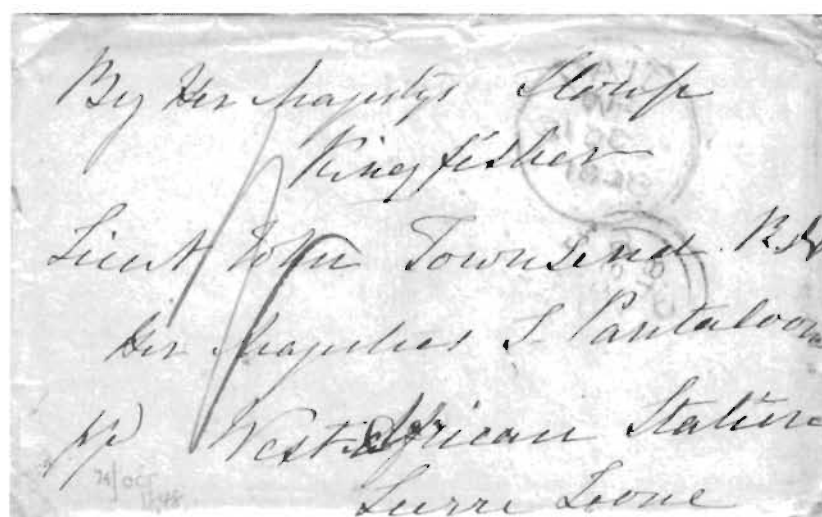 By Her Majestys Sloop
Kingfisher
Lieut John Townsend R.N
Her Majesties S Pantaloon
pp West African Station
Sierre Leone
24/OCT
1848